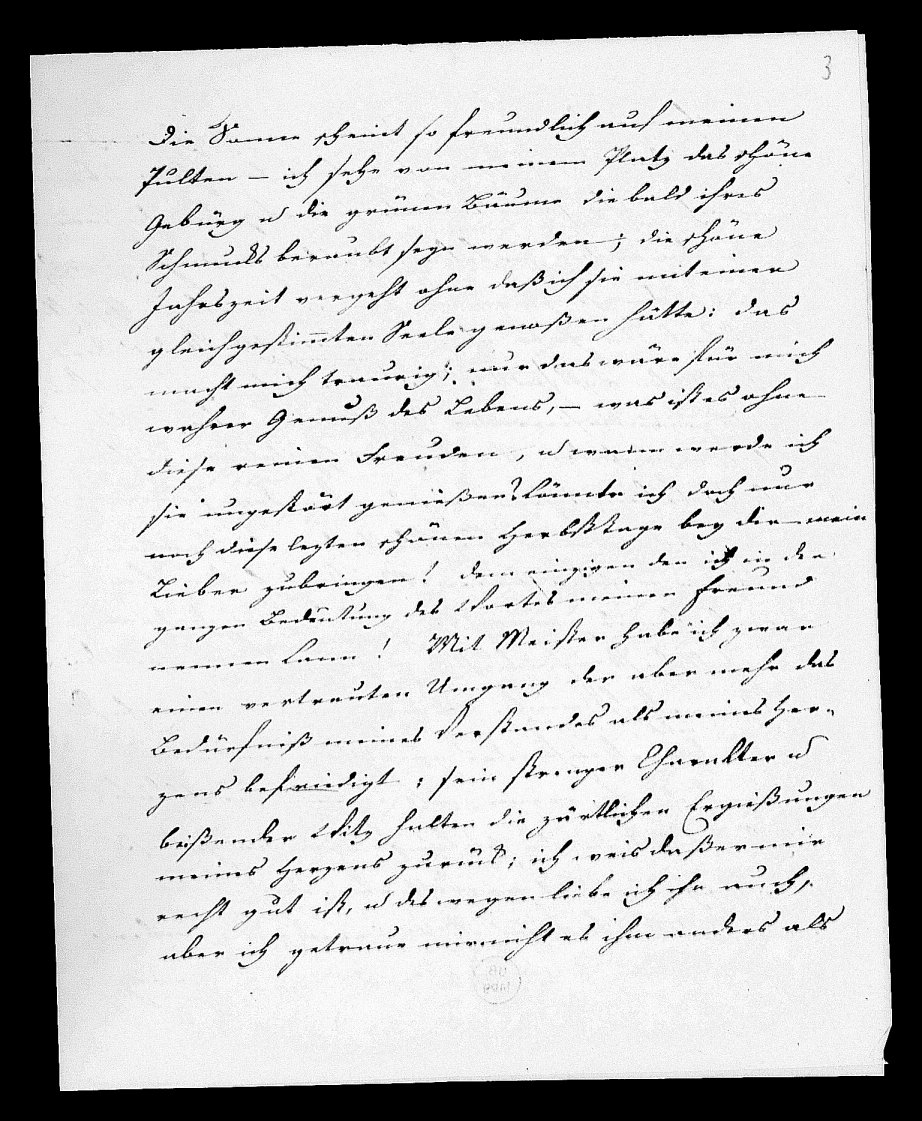 3
Die Sonne scheint so freundlich auf meinen
Pulten – ich sehe von meinem Platz das schöne
Gebürg u die grünen Bäume die bald ihres
Schmucks beraubt seyn werden; die schöne
Jahrszeit vergeht ohne daß ich sie mit einer
gleichgestimmten Seele genoßen hätte: das
macht mich traurig; nur das wäre für mich
wahrer Genuß des Lebens, – was ist es ohne
diese reinen Freuden, u wann werde ich
sie ungestört genießen? Könnte ich doch nur
noch diese lezten schönen Herbsttage bey dir – mein
Lieber zubringen! dem einzigen den ich in der
ganzen Bedeutung des Wortes meinen Freund
nennen kann! Mit Meister habe ich zwar
einen vertrauten Umgang der aber mehr das
Bedürfniß meines Verstandes als meines Her-
zens befriedigt; sein strenger Charakter u
beißender Witz halten die zärtlichen Ergießungen
meines Herzens zurück; ich weis daß er mir
recht gut ist, u deswegen liebe ich ihn auch,
aber ich getraue mir nicht es ihm anders als